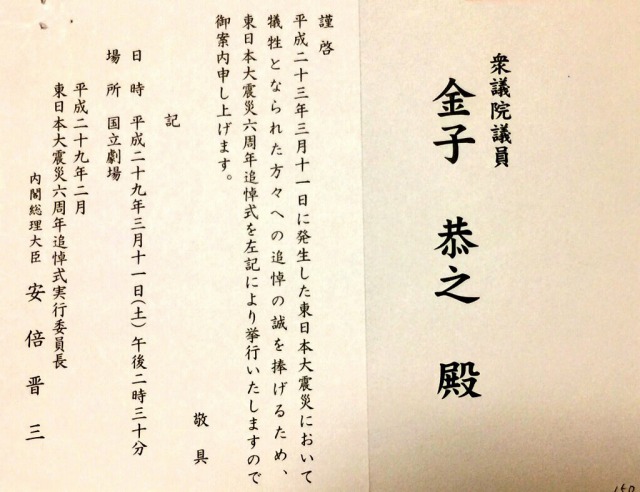 衆議院議員
金子 恭之 殿
謹啓
平成二十三年三月十一日に発生した東日本大震災において
犠牲となられた方々への追悼の誠を捧げるため、
東日本大震災六周年追悼式を左記により挙行いたしますので
御案内申し上げます。
敬具
記
日時 平成二十九年三月十一日(土)午後二時三十分
場所 国立劇場
平成二十九年二月
東日本大震災六周年追悼式実行委員長
内閣総理大臣 安倍晋三